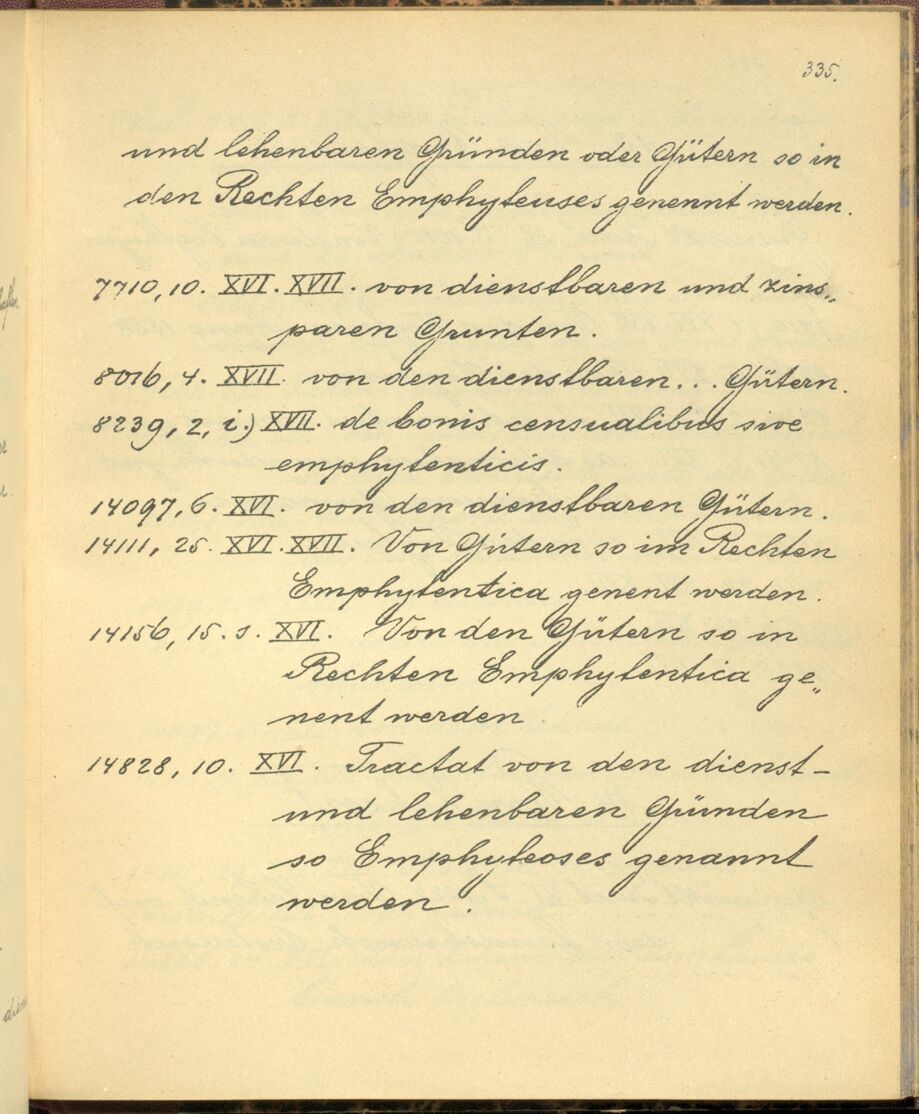 335.
und lehenbaren Gründen oder Gütern so in
den Rechten Emphyteuses genennt werden.
7710, 10. XVI. XVII. von dienstbaren und zins„
paren Grunten.
8016, 4. XVII. von den dienstbaren... Gütern.
8239, 2, i.) XVII. de bonis censualibus sive
emphytenticis.
14097, 6. XVI. von den dienstbaren Gütern.
14111, 25. XVI. XVII. Von Gütern so im Rechten
Emphytentica genent werden.
14156, 15. s. XVI. Von den Gütern so in
Rechten Emphytentica ge„
nent werden
14828, 10. XVI. Tractat von den dienst-
und lehenbaren Gründen
so Emphyteoses genannt
werden.